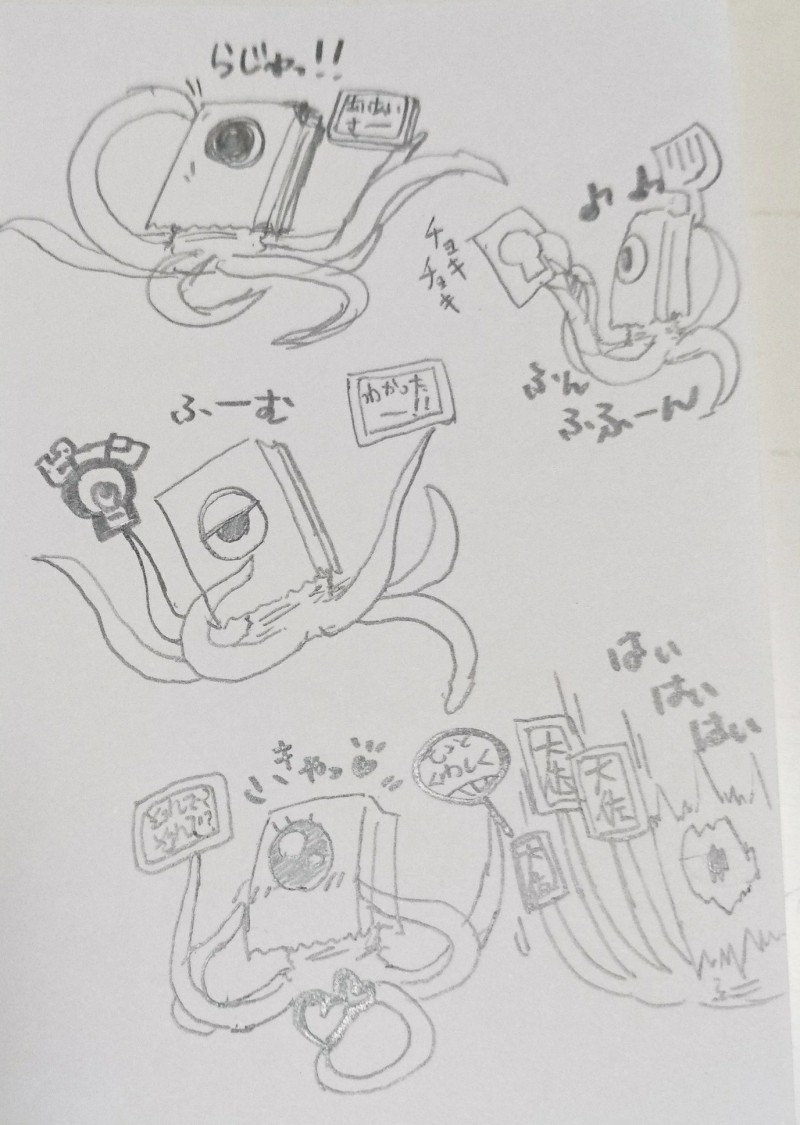 らじゃっ!!
チョキ
チョキ
ふん
ふふーん
ふーむ
わかった
ー!!
きゃっ
それで?
それで!?
もっと
くわしく
大作
大作
大作
はい
はい
はい